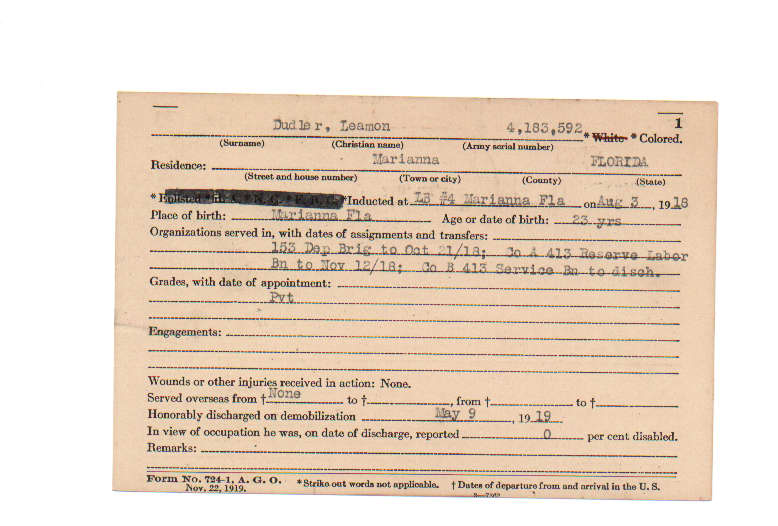 1
Dudler, Leamon 4,183,592 * White * Colored.
(Surname) (Christian name) (Army serial number)
Residence: Marianna FLORIDA
(Street and house number) (Town or city) (County) (State)
* Enlisted * R. A. * N. G. * E. R. C. * Inducted at LB #4 Marianna Fla on Aug 3, 1918
Place of birth: Marianna Fla Age or date of birth: 23 yrs
Organizations served in, with dates of assignments and transfers:
153 Dep Brig to Oct 21/18; Co A 413 Reserve Labor
Bn to Nov 12/18; Co B 413 Service Bn to disch.
Grades, with date of appointment:
Pvt
Engagements:
Wounds or other injuries received in action: None.
Served overseas from † None to †, from † to †
Honorably discharged on demobilization May 9, 1919
In view of occupation he was, on date of discharge, reported 0 per cent disabled.
Remarks:
Form No. 724-1, A. G. O. * Strike out words not applicable. † Dates of departure from and arrival in the U. S.
Nov. 22, 1919.